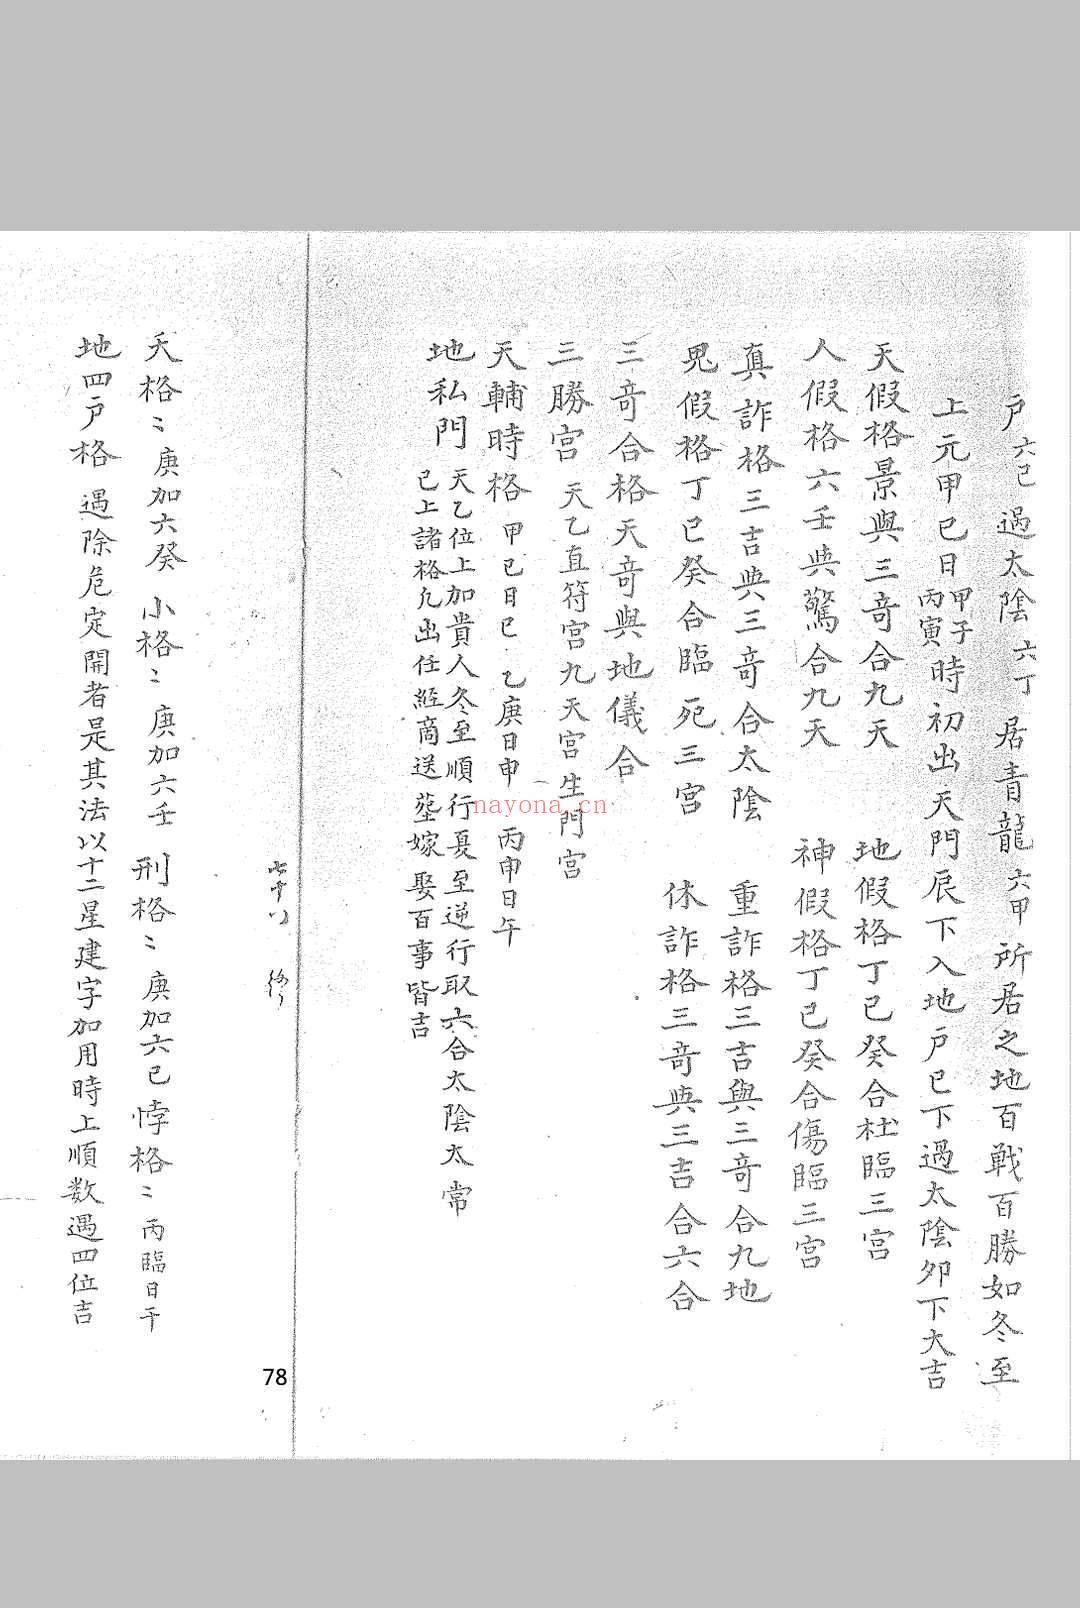 户六己過太陰六丁居青龍六甲所居之地百戰百勝如冬至
上元甲己日甲子丙寅時初出天門辰下入地户巳下過太陰夘下大吉
天假格景與三竒合九天　地假格丁己癸合杜臨三宫
人假格六壬與驚合九天　神假格丁己癸合傷臨三宫
真詐格三吉與三竒合太陰　重詐格三吉與三竒合九地
鬼假格丁己癸合臨死三宫　休詐格三竒與三吉合六合
三竒合格天竒與地儀合
三勝宫天乙直符宫九天宫生門宫
天輔時格甲己日巳乙庚日申丙申日午
地私門天乙位上加貴人冬至順行夏至逆行取六合太陰太常
已上諸格凡出任經商送塟嫁娶百事皆吉
七十八
nayona.cn
78
天格〻庚加六癸小格〻庚加六壬刑格〻庚加六己悖格〻丙臨日干
地四户格遇除危定開者是其法以十二星建字加用時上順数遇四位吉